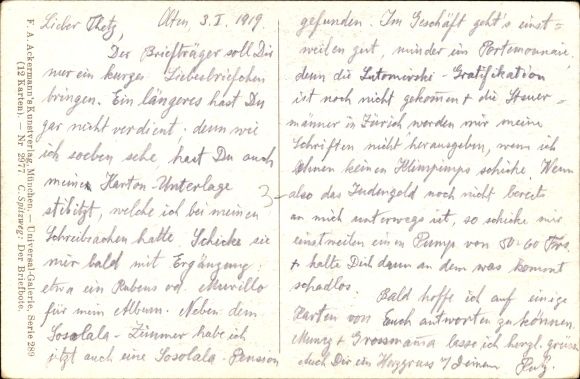 F. A. Ackermann's Kunstverlag, München. — Universal-Galerie, Serie 289
(12 Karten). — Nr. 2977. C. Spitzweg: Der Briefbote.
Lieber Thetz, Olten 3. I. 1919.
Der Briefträger soll Dir
nur ein kurzes Liebesbriefchen
bringen. Ein längeres hast Du
gar nicht verdient; denn wie
ich soeben sehe, hast Du auch
meine Karton-Unterlage
stibitzt, welche ich bei meinen
Schreibsachen hatte. Schicke sie
mir bald mit Ergänzung
etwa ein Rubens od. Murillo
für mein Album. Neben dem
Sosolala-Zimmer habe ich
jetzt auch eine Sosolala-Pension
gefunden. Im Geschäft geht's einst-
weilen gut, minder im Portemonnaie,
denn die Gratifikation
ist noch nicht gekommen & die Steuer-
männer in Zürich werden mir meine
Schriften nicht herausgeben, wenn ich
ihnen keinen Klimpimps schicke. Wenn
also das Judengeld noch nicht bereits
an mich unterwegs ist, so schicke mir
einstweilen einen Pump von 50-60 Frs.
& halte Dich dann an dem was kommt
schadlos.
Bald hoffe ich auf einige
Karten von Euch antworten zu können.
& Grossmama lasse ich herzl. grüssen
auch Dir ein Herzgruss v/ Deinem